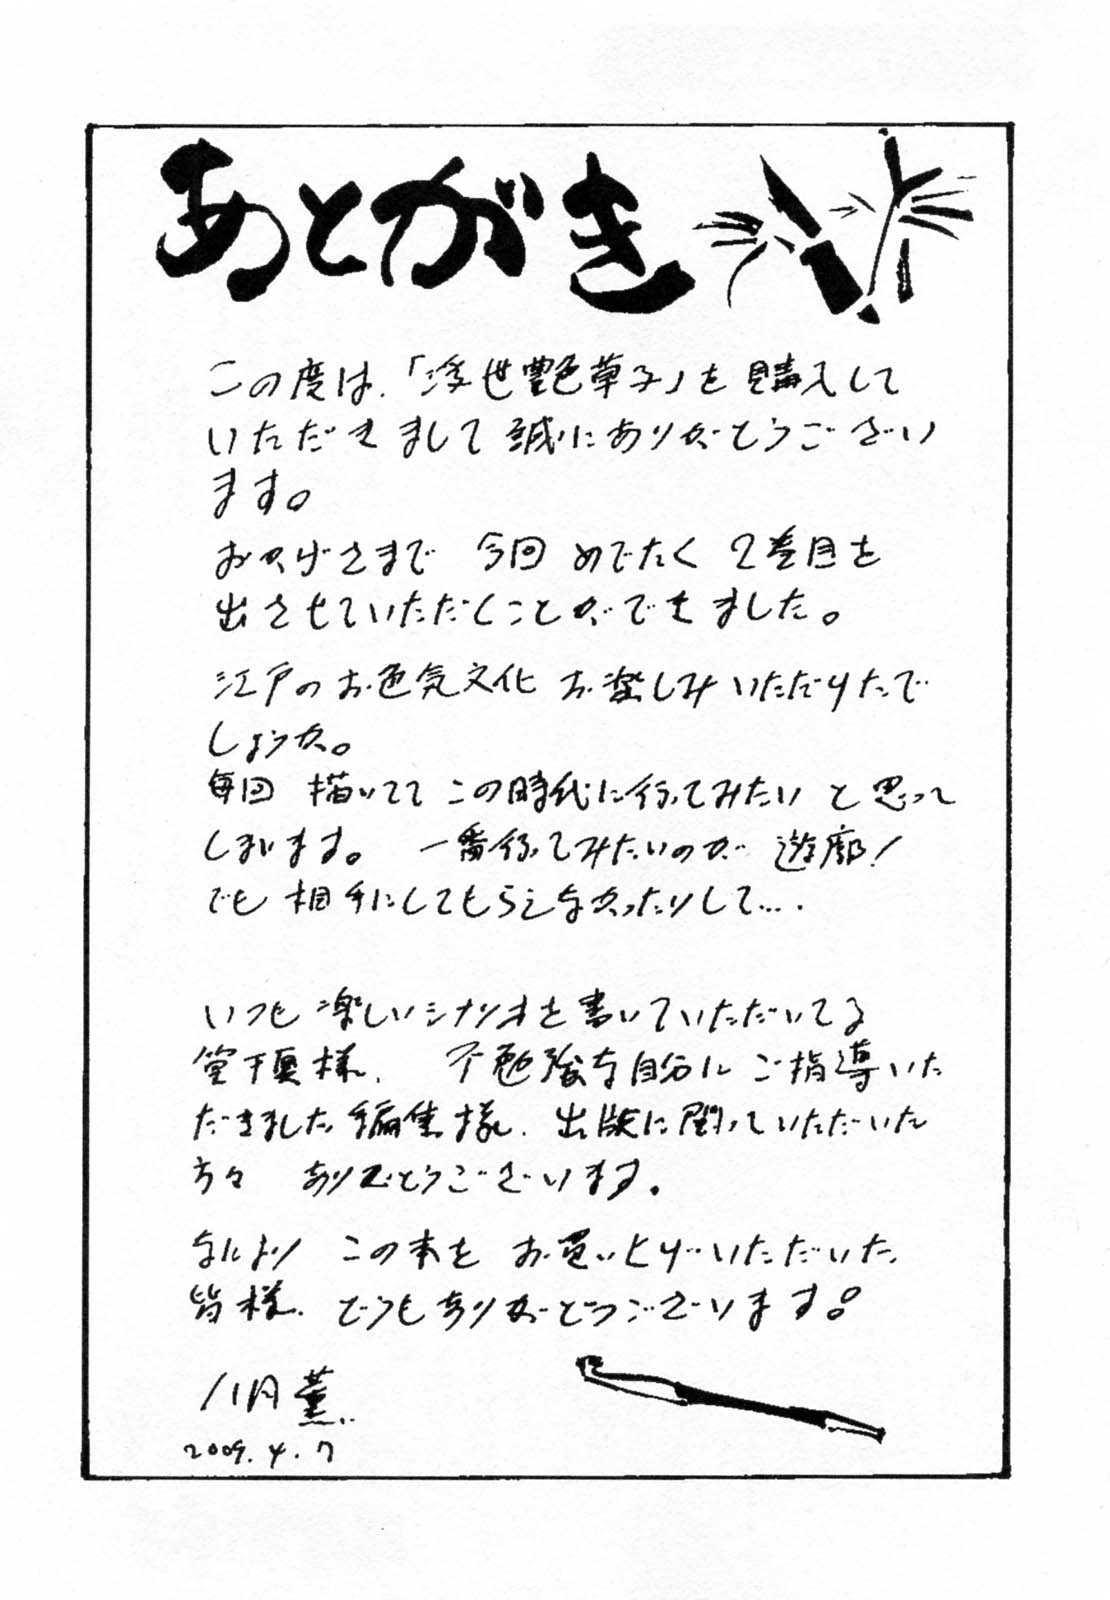 あとがき
この度は、「浮世艶草子」を購入して
いただきまして誠にありがとうござい
ます。
おかげさまで 今回 めでたく 2巻目を
出させていただくことができました。
江戸のお色気文化 お楽しみいただけたで
しょうか。
毎回 描いてて この時代に行ってみたい と思って
しまいます。 一番行ってみたいのが 遊廓!
でも 相手にしてもらえなかったりして….
いつも 楽しいシナリオを書いていただいてる
堂下夏様、 不勉強な自分に ご指導いた
だきました編集様、出版に関っていただいた
方々 ありがとうございます。
なにより この本を お買いとげいただいた
皆様、どうもありがとうございます。
八月薫
2009.4.7